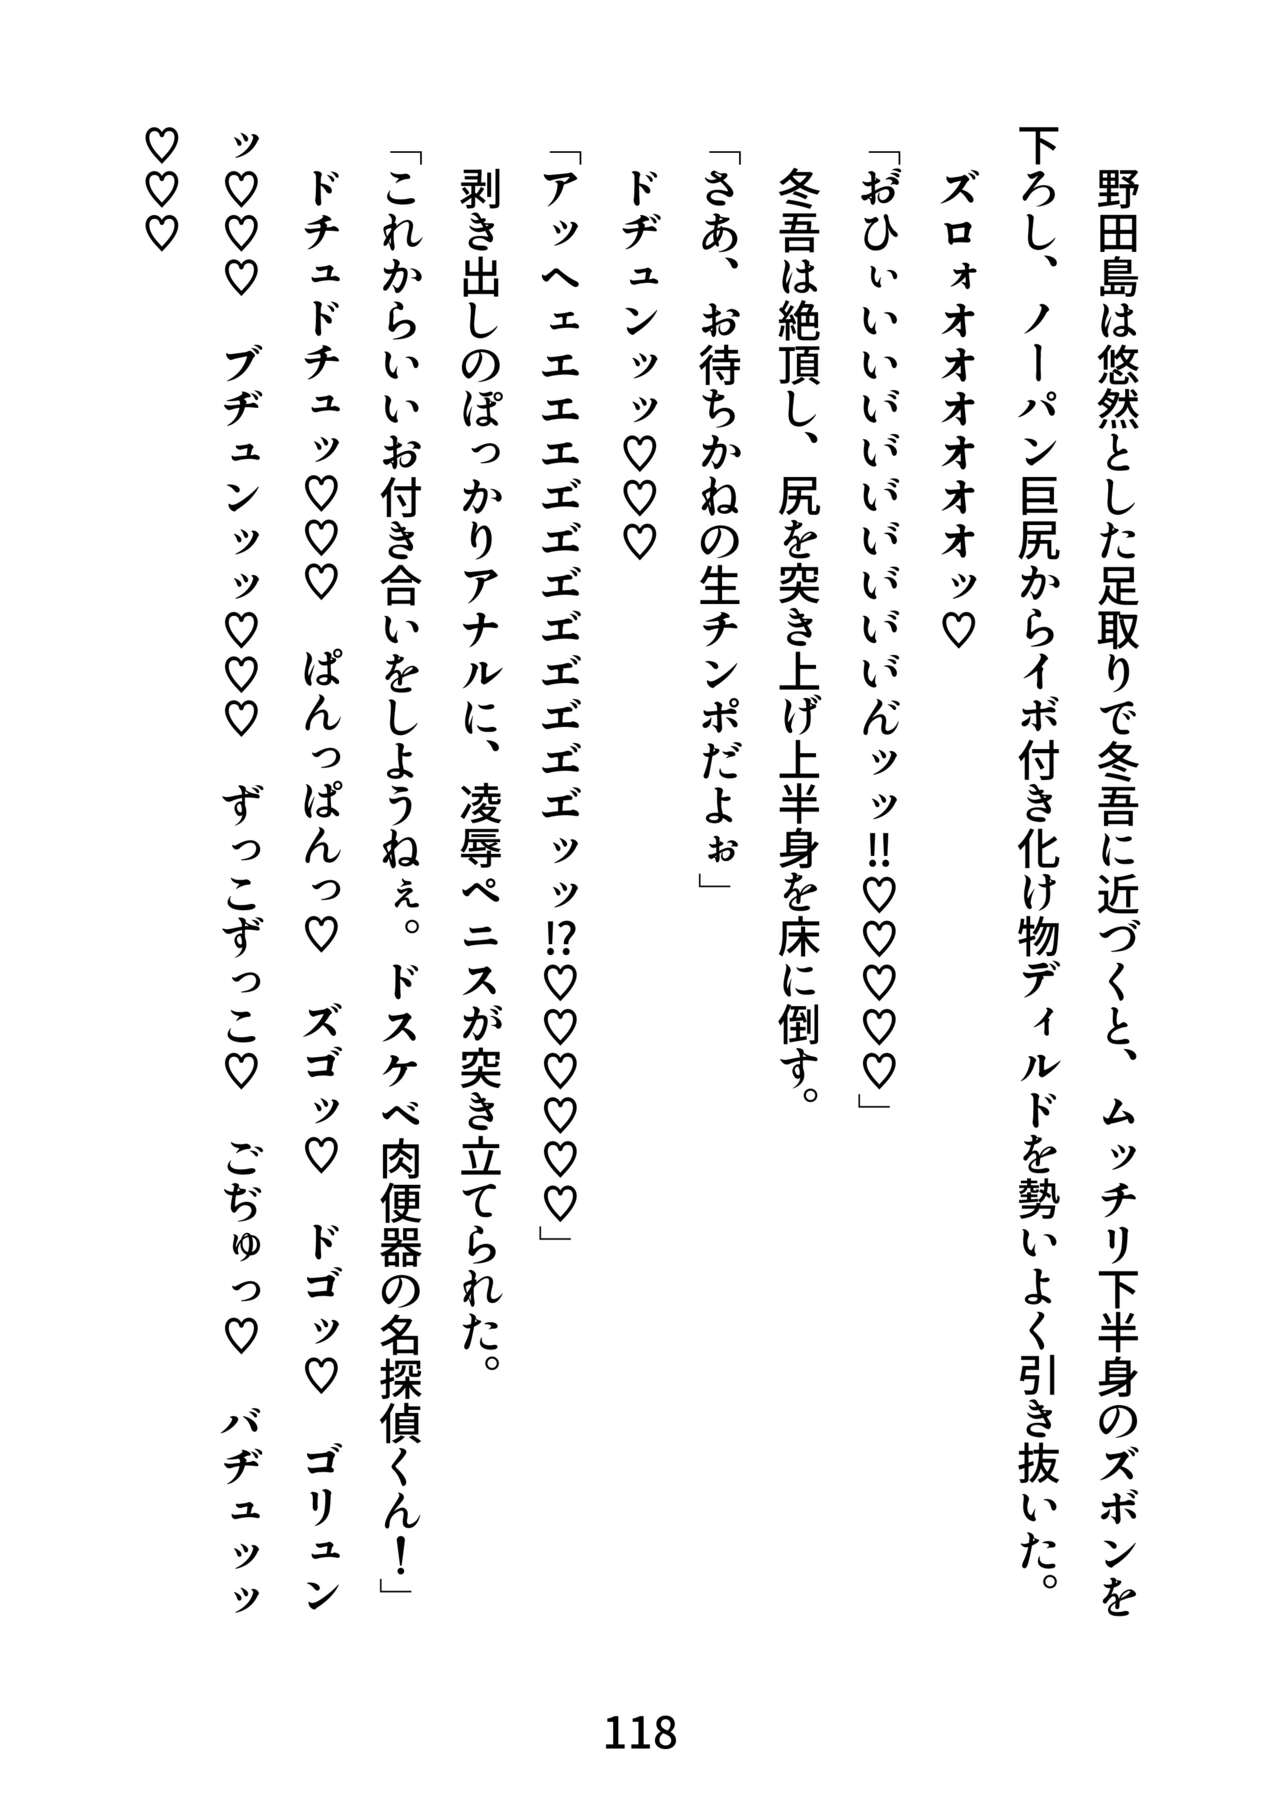 野田島は悠然とした足取りで冬吾に近づくと、ムッチリ下半身のズボンを
下ろし、ノーパン巨尻からイボ付き化け物ディルドを勢いよく引き抜いた。
　ズロォオオオオオオッ♡
「お゛ひぃいいい゛い゛い゛い゛い゛い゛い゛ん゛ッッ‼♡♡♡♡♡」
　冬吾は絶頂し、尻を突き上げ上半身を床に倒す。
「さあ、お待ちかねの生チンポだよぉ」
　ドヂュンッッ♡♡♡
「アッヘェエエエエ゛エ゛エ゛エ゛エ゛エ゛エ゛エ゛ッッ⁉♡♡♡♡♡♡」
　剥き出しのぽっかりアナルに、凌辱ペニスが突き立てられた。
「これからいいお付き合いをしようねぇ。ドスケベ肉便器の名探偵くん！」
　ドチュドチュッ♡♡♡　ぱんっぱんっ♡　ズゴッ♡　ドゴッ♡　ゴリュン
ッ♡♡♡　ブヂュンッッ♡♡♡　ずっこずっこ♡　ごぢゅっ♡　バヂュッッ
♡♡♡
118